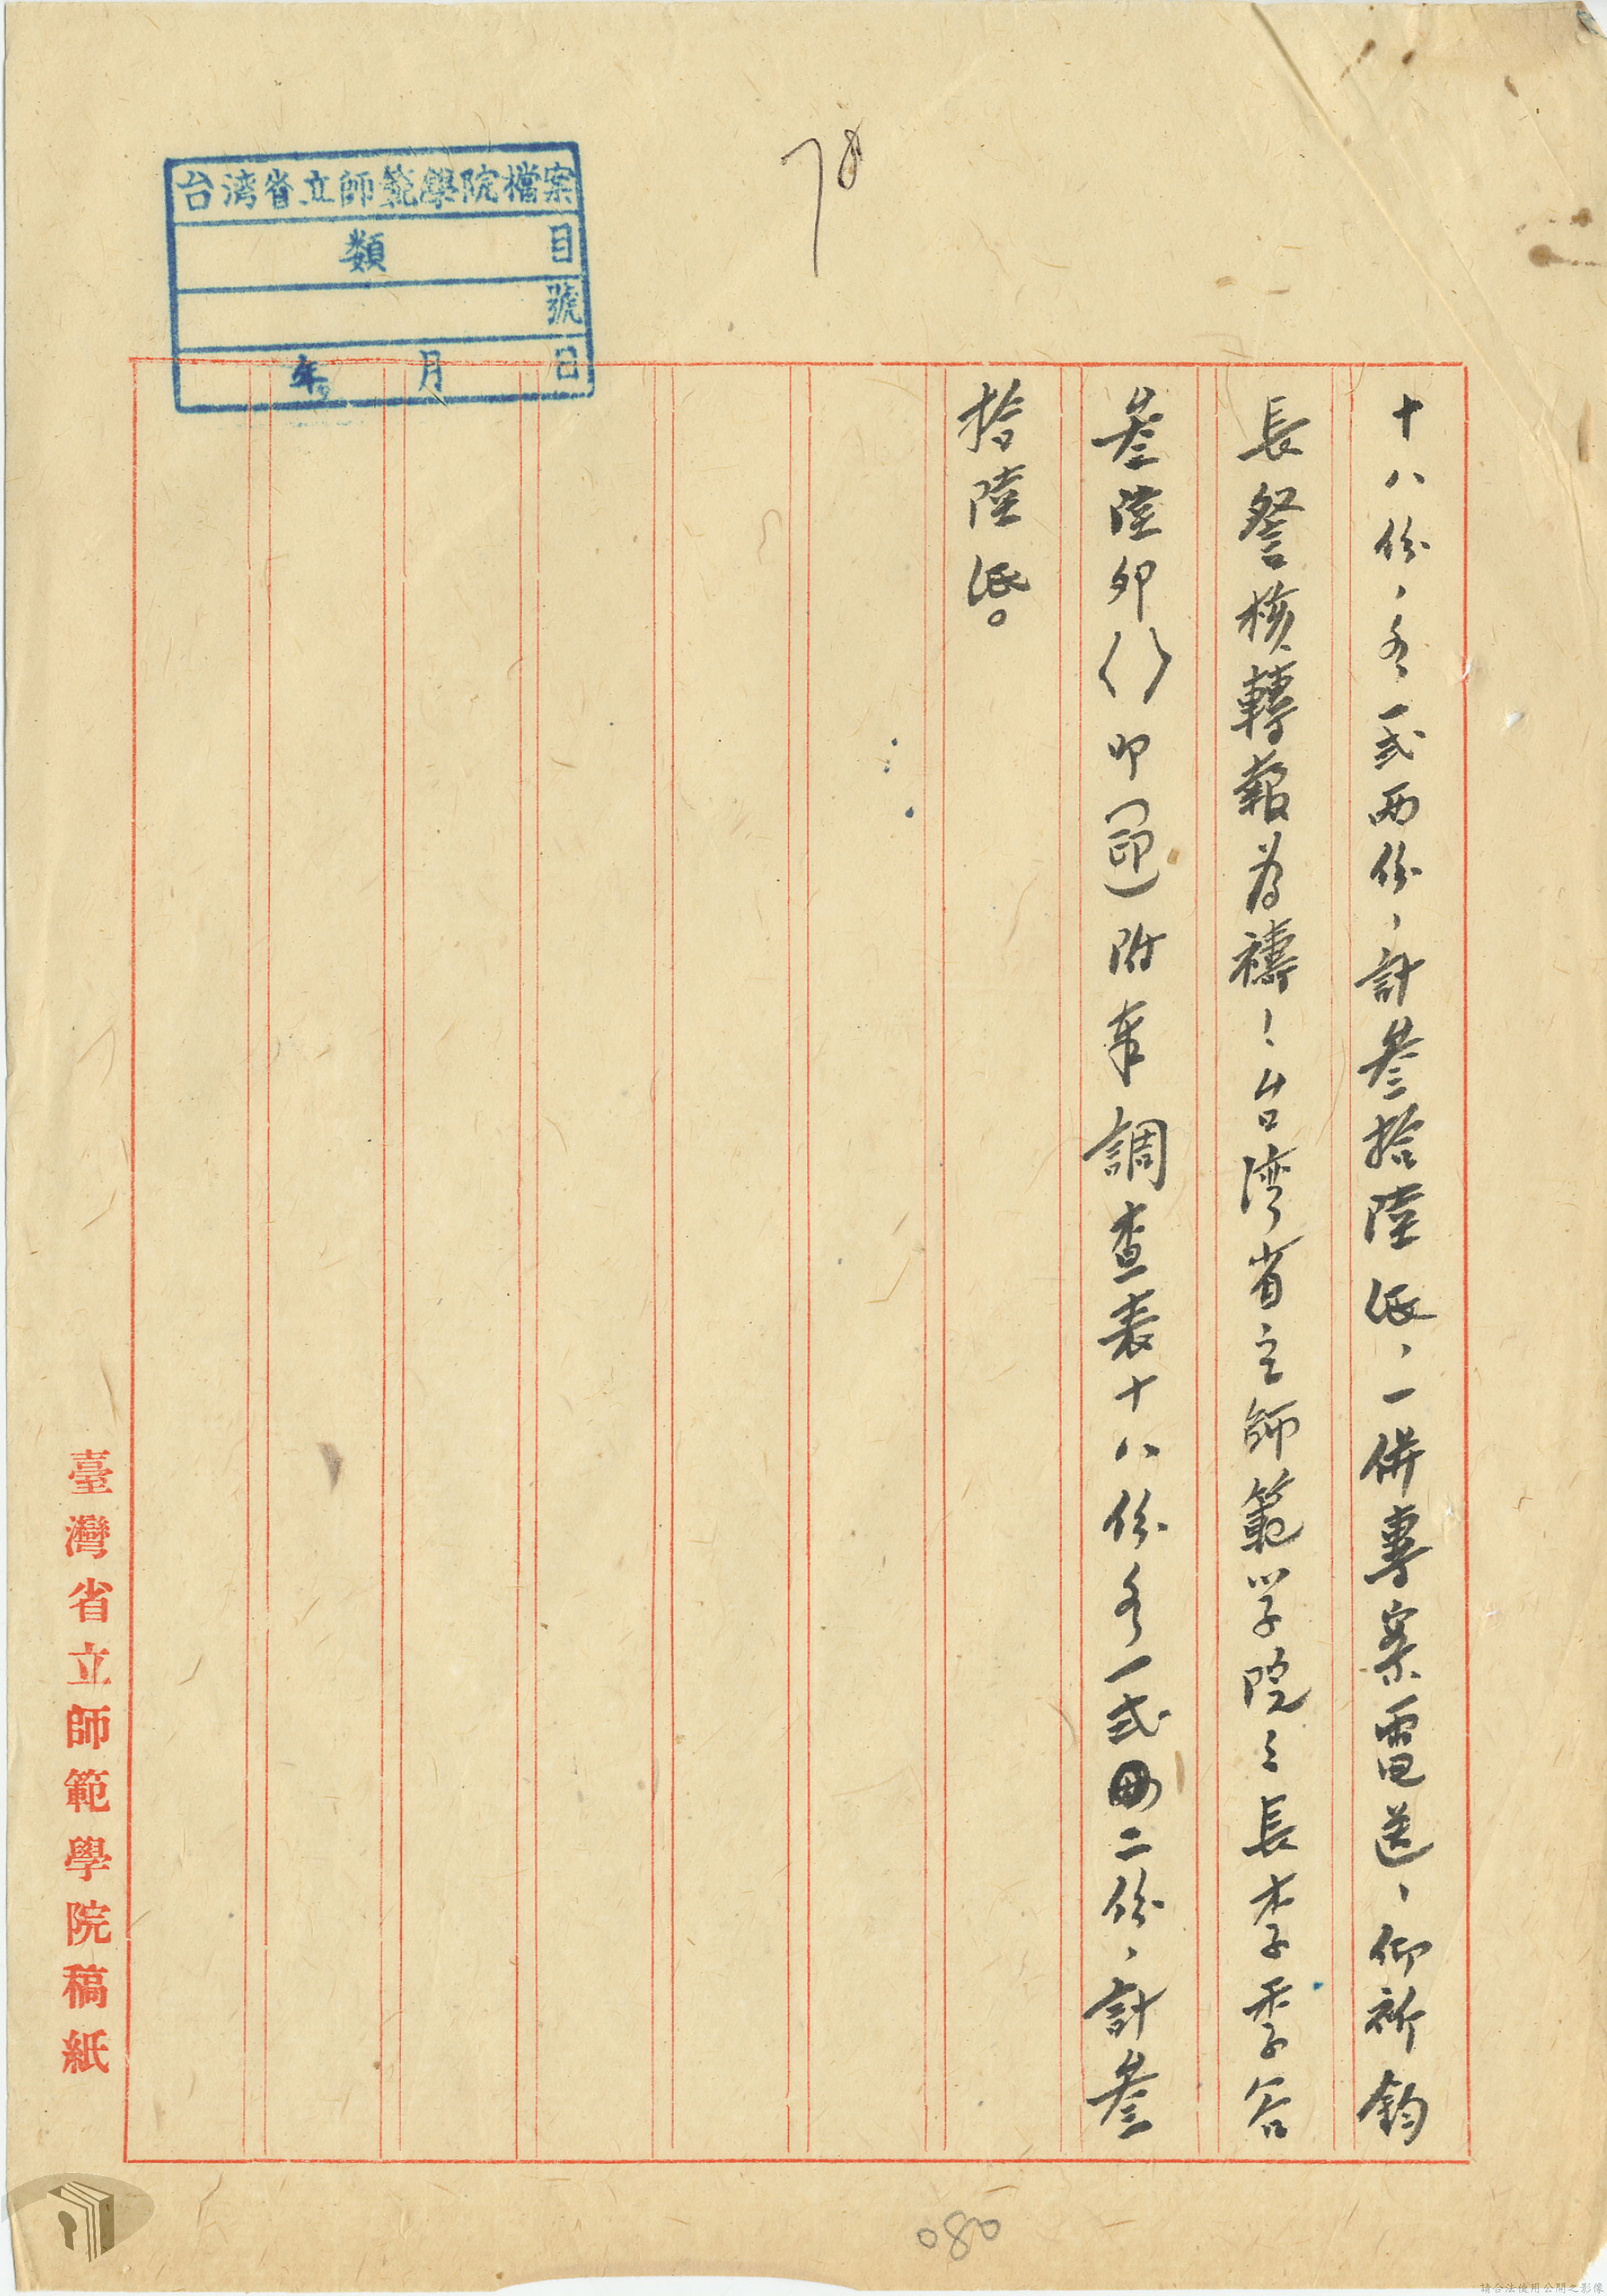 78
台湾省立師範學院檔案
類 目
號
年 月 日
十八份，各一式兩份，計叁拾陸紙，一併專案電送，仰祈鈞
長詧核轉報為禱！台湾省立師範学院々長李季谷
叁陸卯（ ）叩（印）附奉調查表十八份各一式二份，計叁
拾陸紙。
臺灣省立師範學院稿紙
080
請合法使用公開之影像